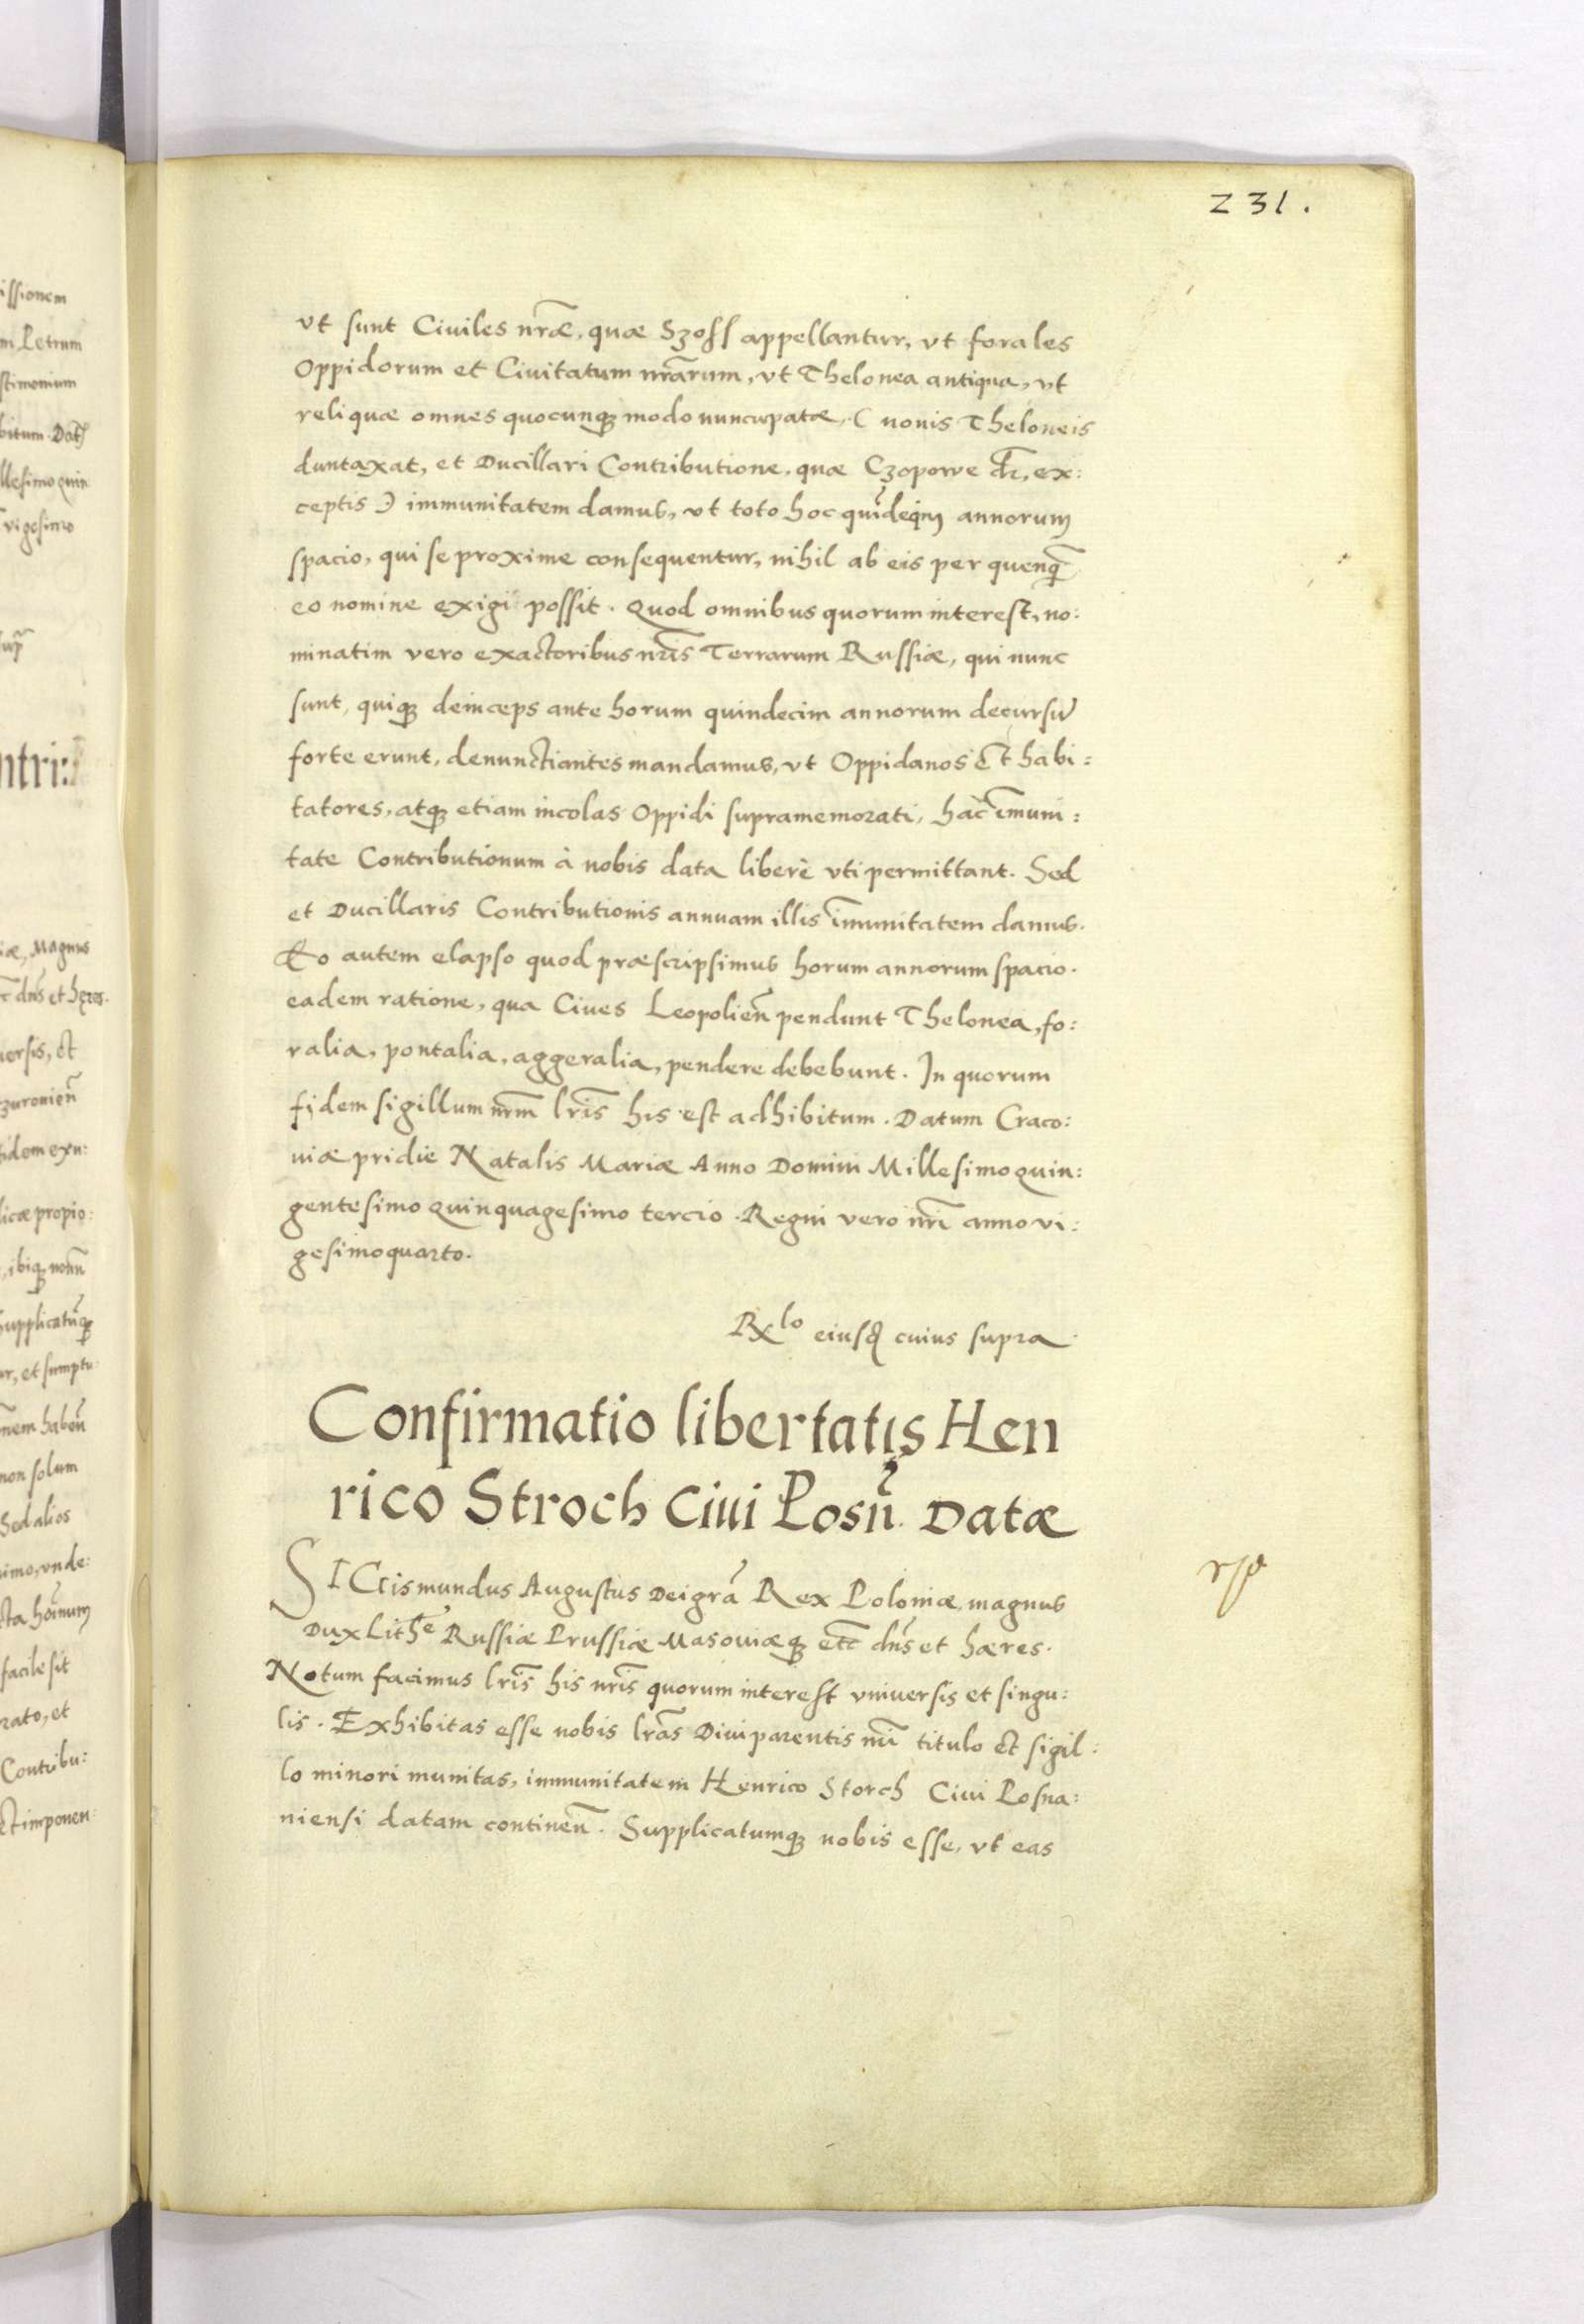 231.
vt sunt Ciuiles nr̃æ, quæ Szoss appellantur, vt forales
Oppidorum et Ciuitatum nr̃arum, vt Thelonea antiqua, vt
reliquæ omnes quocunqꝫ modo nuncupatæ, ( nouis Theloneis
duntaxat, et Ducillari Contributione, quæ Czopowe dr̃, ex:
ceptis ) immunitatem damus, vt toto hoc quĩdecim annorum
spacio, qui se proxime consequentur, nihil ab eis per quenqꝫ̃
eo nomine exigi possit. Quod omnibus quorum interest, no:
minatim vero exactoribus nr̃is Terrarum Russiæ, qui nunc
sunt, quiqꝫ deinceps ante horum quindecim annorum decursũ
forte erunt, denunctiantes mandamus, vt Oppidanos et habi:
tatores, atqꝫ etiam incolas Oppidi supramemorati, hac ĩmuni:
tate Contributionum à nobis data liberè vti permittant. Sed
et Ducillaris Contributionis annuam illis ĩmunitatem damus.
Eo autem elapso quod præscripsimus horum annorum spacio.
eadem ratione, qua Ciues Leopolieñ pendunt Thelonea, fo:
ralia, pontalia, aggeralia, pendere debebunt. In quorum
fidem sigillum nr̃m lr̃is his est adhibitum. Datum Craco:
uiæ pridie Natalis Mariæ Anno Domini Millesimo quin:
gentesimo quinquagesimo tercio. Regni vero nr̃i anno vi:
gesimoquarto.
Rx^lo eiusđ cuius supra
Confirmatio libertatis Hen
rico Stroch Ciui Posñ. Datæ
SIGismundus Augustus Dei gr̃a Rex Poloniæ, magnus
Dux Lithẽ Russiæ Prussiæ Masouiæqꝫ etc̃ dñs et hæres.
Notum facimus lr̃is his nr̃is quorum interest vniuersis et singu:
lis. Exhibitas esse nobis lr̃as Diui parentis nr̃i titulo et sigil:
lo minori munitas, immunitatem Henrico Storch Ciui Posna:
niensi datam continen̄. Supplicatumqꝫ nobis esse, vt eas